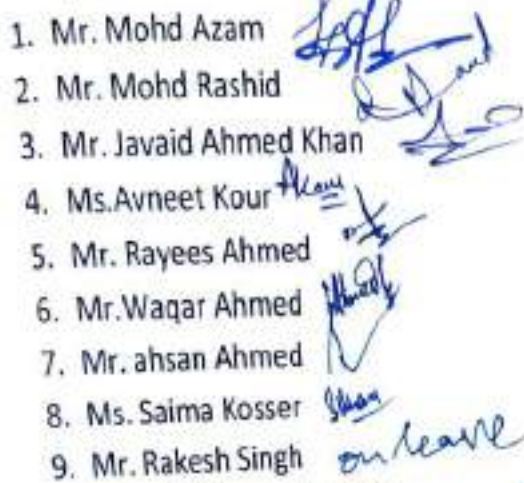 1. Mr. Mohd Azam
2. Mr. Mohd Rashid
3. Mr. Javaid Ahmed Khan
4. Ms.Avneet Kour
5. Mr. Rayees Ahmed
6. Mr.Waqar Ahmed
7. Mr. ahsan Ahmed
8. Ms. Saima Kosser
9. Mr. Rakesh Singh on leave